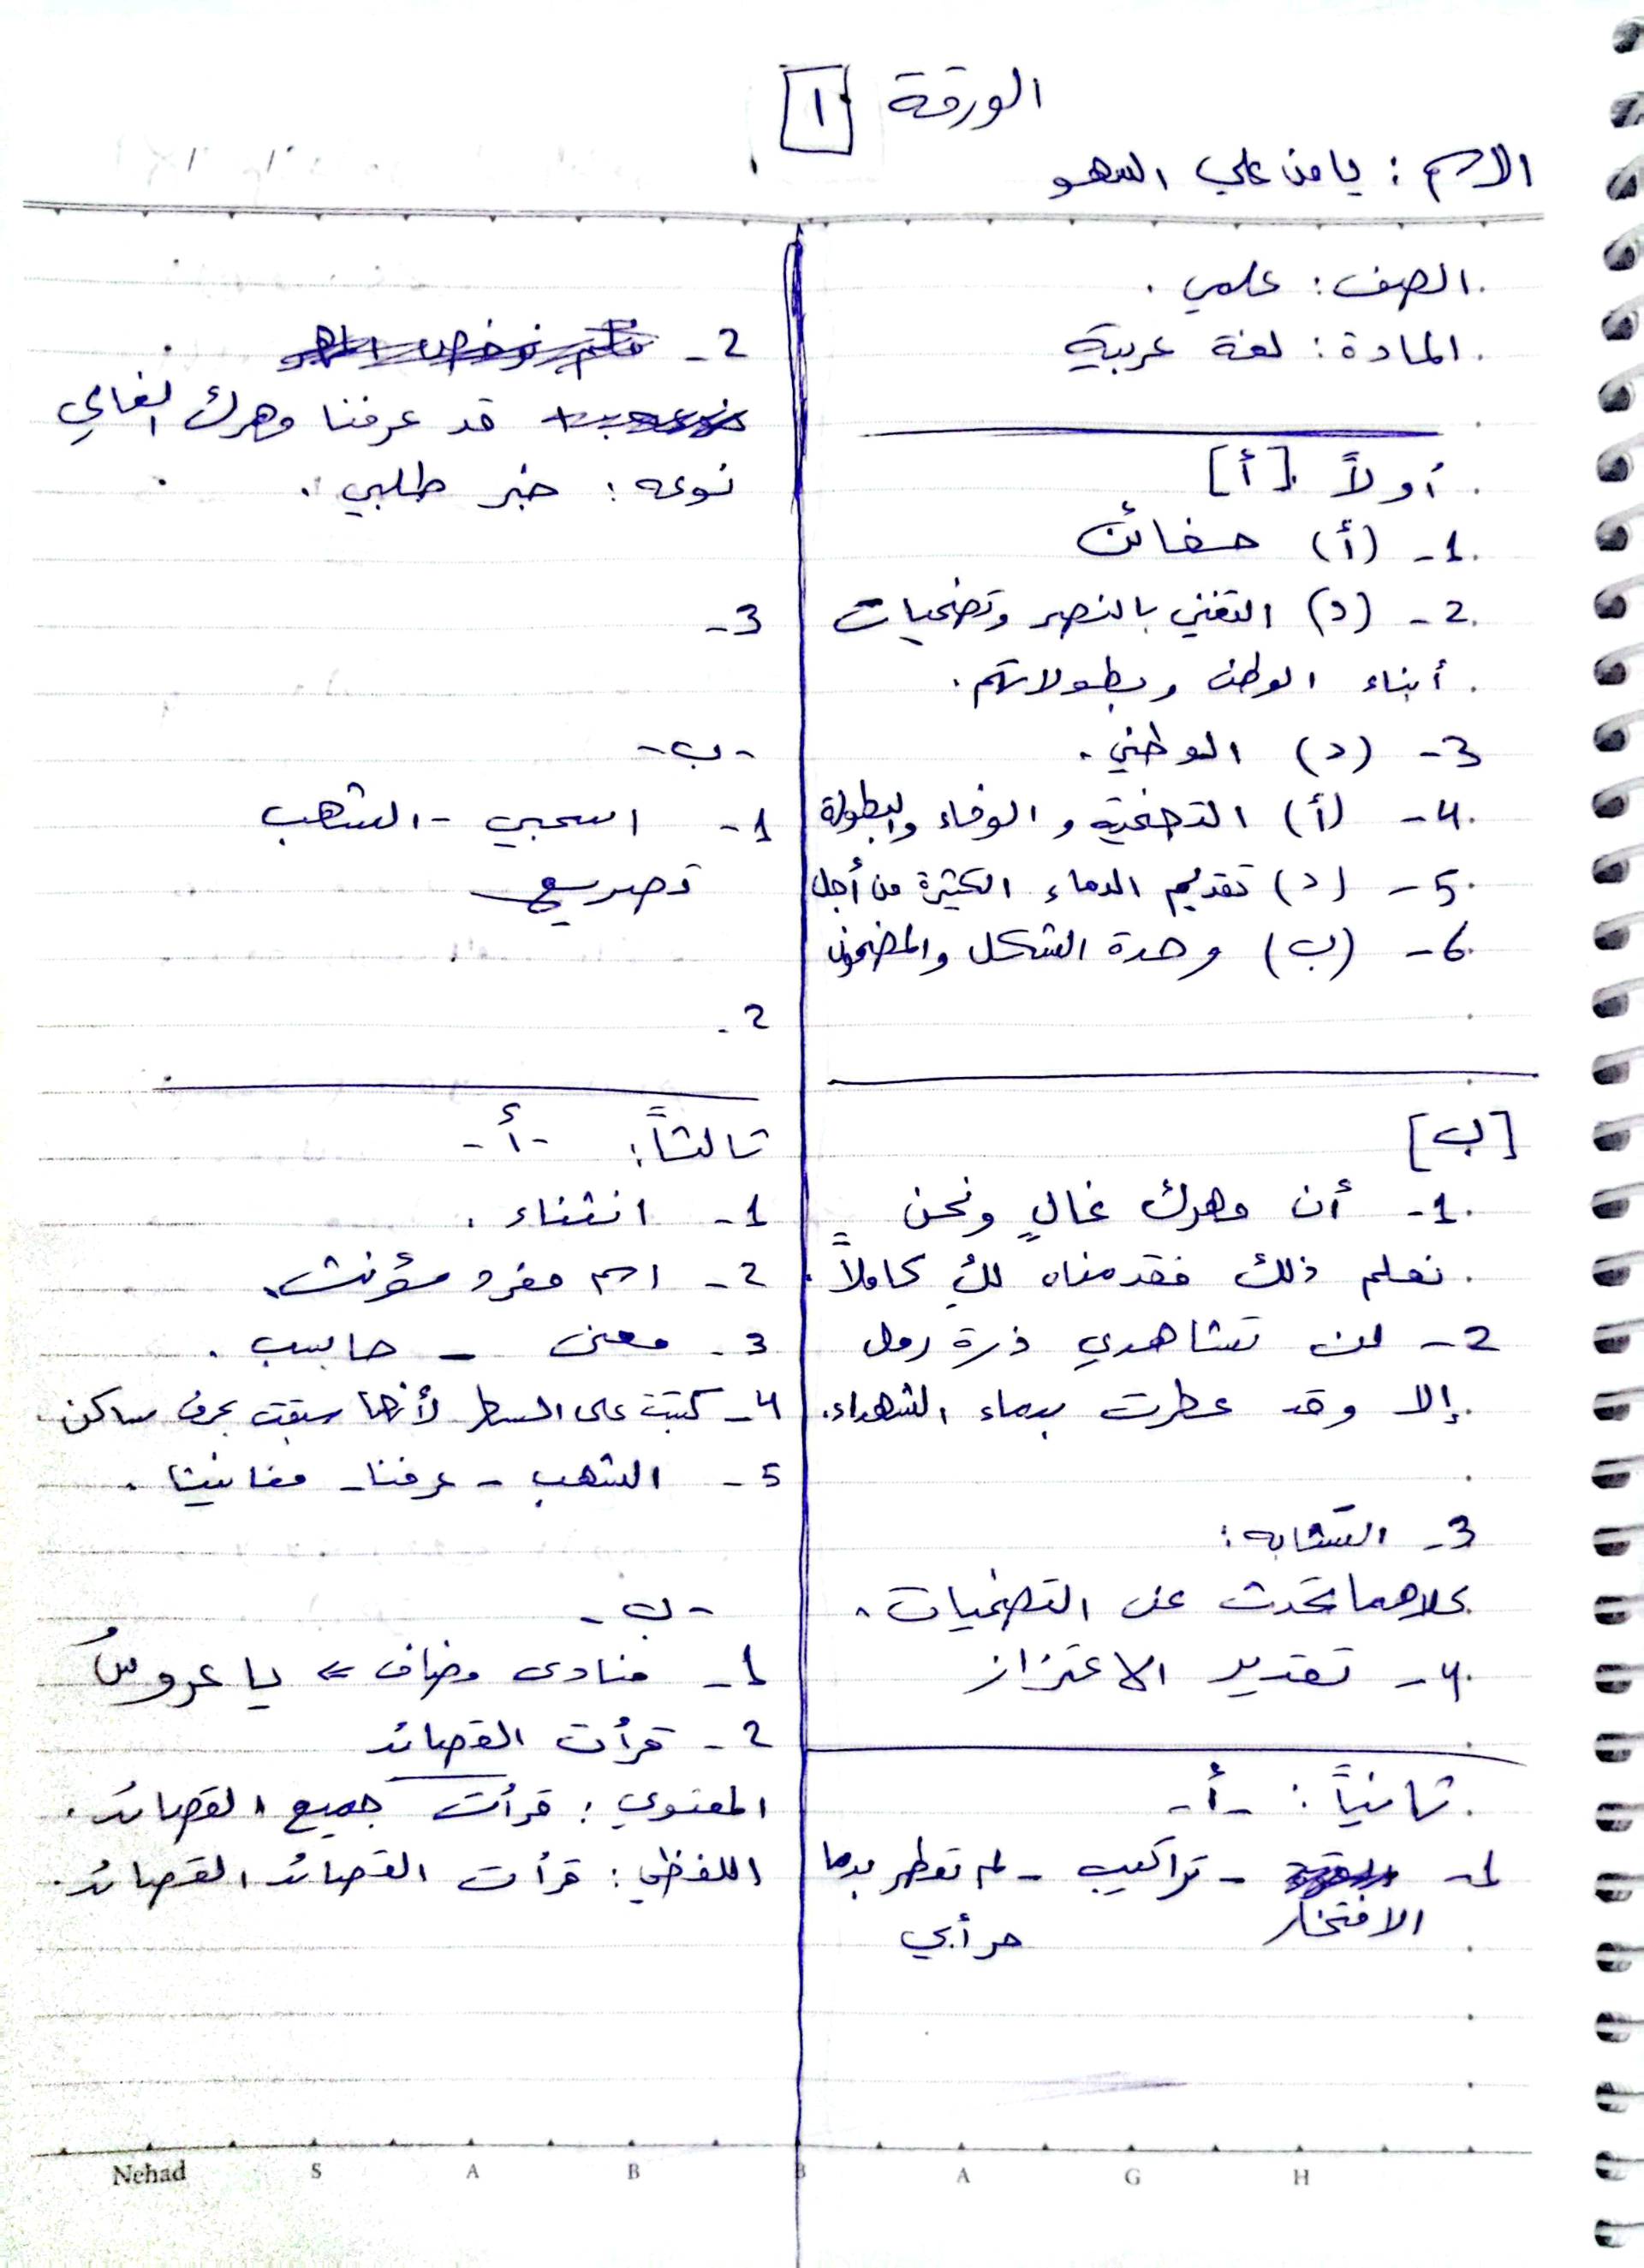 الورقة 1
الاسم : يامن علي السهو
الصف : علمي .
المادة : لغة عربية
أولاً [أ]
1- (أ) ضغائن
2- (د) التغني بالنصر وتضحيات
أبناء الوطن وبطولاتهم .
3- (د) الوطني .
4- (أ) التضحية و الوفاء والبطولة
5- (د) تقديم الدماء الكثيرة من أجل
6- (ب) وحدة الشكل والمضمون
[ب]
1- أن مهرك غالٍ ونحن
نعلم ذلك فقدمناه لكِ كاملاً .
2- لن تشاهدي ذرة رمل
إلا وقد عطرت بدماء الشهداء .
3- التشابه :
كلاهما تحدث عن التضحيات .
4- تقدير الاعتزاز
ثانياً : -أ-
1- الافتخار - تراكيب - لم تعطر بدما
حر أبي
2-
قد عرفنا مهرك الغالي
نوعه : خبر طلبي .
3-
-ب-
1- اسحبي - الشهب
تصريع
2-
ثالثاً : -أ-
1- انتشاء .
2- اسم مفرد مؤنث .
3- معنى - حابيب .
4- كتبت على السطر لأنها سبقت بحرف ساكن
5- الشهب - عرفنا - مغانينا .
-ب-
1- منادى مضاف <= يا عروسُ
2- قرأت القصائد
المعنوي : قرأت جميع القصائد .
اللفظي : قرأت القصائد القصائد .
Nehad S A B B A G H